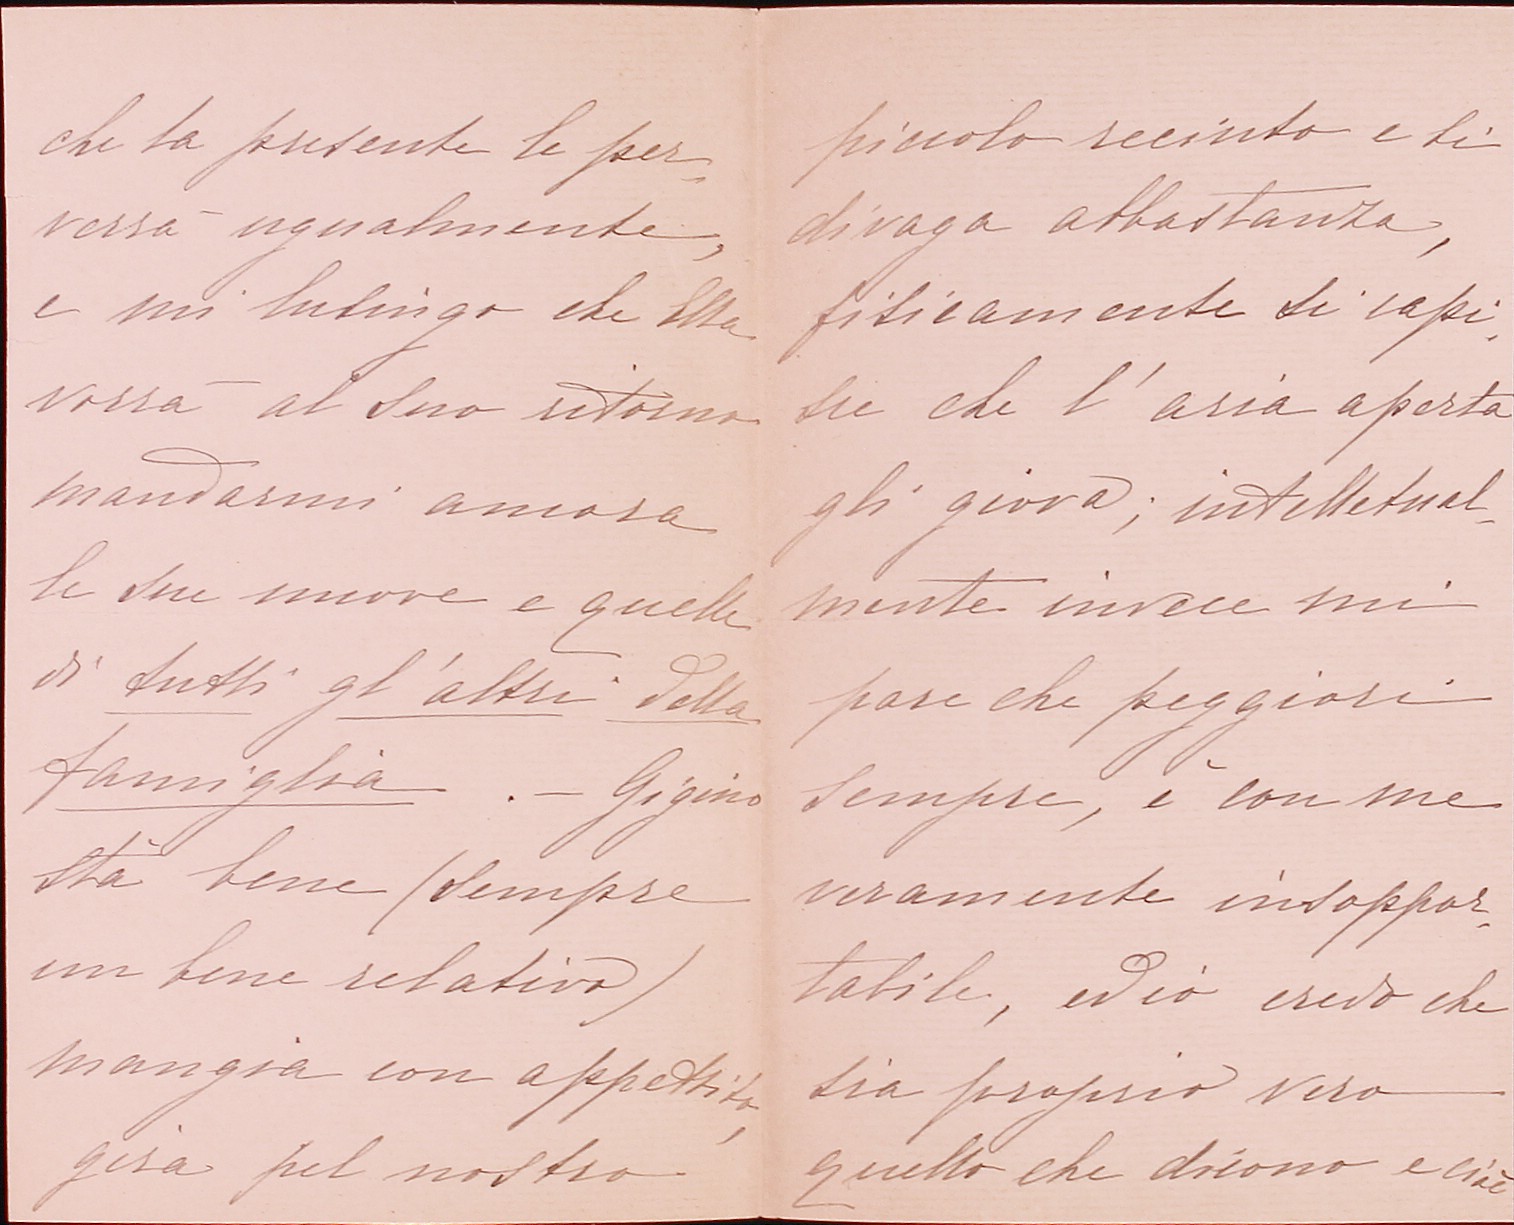 che la presente le per-
verrà ugualmente,
e mi lusingo che Ella
vorrà al suo ritorno
mandarmi ancora
le sue nuove e quelle
di tutti gl'altri della
famiglia. - Gigino
stà bene (sempre
un bene relativo)
mangia con appettito,
gira pel nostro
piccolo recinto e si
divaga abbastanza,
fisicamente si capi-
sce che l'aria aperta
gli giova; intelletual-
mente invece mi
pare che peggiori
sempre, è con me
veramente insoppor-
tabile, ed io credo che
sia proprio vero
quello che dicono e cioè